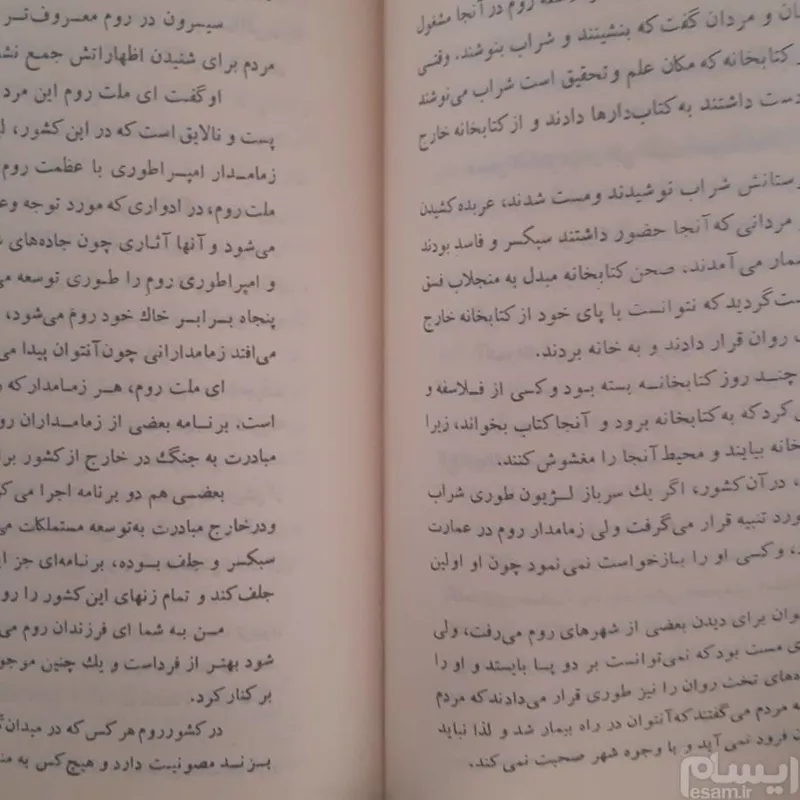 ان و مردان گفت که بنشینند و شراب بنوشند. وقتی
کتابخانه که مکان علم و تحقیق است شراب می‌نوشند
دست داشتند به کتاب‌دارها دادند و از کتابخانه خارج
رستانش شراب نوشیدند و مست شدند، عربده کشیدن
مردانی که آنجا حضور داشتند سبکسر و فاسد بودند
شمار می‌آمدند. صحن کتابخانه مبدل به منجلاب فسق
ست گردید که نتوانست با پای خود از کتابخانه خارج
روان قرار دادند و به خانه بردند.
چند روز کتابخانه بسته بود و کسی از فلاسفه و
ی‌کرد که به کتابخانه برود و آنجا کتاب بخواند، زیرا
خانه بیایند و محیط آنجا را مغشوش کنند.
، در آن کشور، اگر یك سرباز لژیون طوری شراب
ورد تنبیه قرار می‌گرفت ولی زمامدار روم در عمارت
، و کسی او را بازخواست نمی‌نمود چون او اولین
وان برای دیدن بعضی از شهرهای روم می‌رفت، ولی
ی مست بود که نمی‌توانست بر دو پا بایستد و او را
ه‌های تخت روان را نیز طوری قرار می‌دادند که مردم
ه مردم می‌گفتند که آنتوان در راه بیمار شد و لذا نباید
ن فرود نمی‌آید و با وجوه شهر صحبت نمی‌کند.
سیسرون در روم معروف‌تر
مردم برای شنیدن اظهاراتش جمع
او گفت ای ملت روم این مرد
پست و نالایق است که در این کشور،
زمامدار امپراطوری با عظمت روم
ملت روم، در ادواری که مورد توجه
می‌شود و آنها آثاری چون جاده‌های
و امپراطوری روم را طوری توسعه
پنجاه برابر خاك خود روم می‌شود،
می‌افتد زمامدارانی چون آنتوان پیدا می
ای ملت روم، هر زمامدار که
است. برنامه بعضی از زمامداران
مبادرت به جنگ در خارج از کشور
بعضی هم دو برنامه اجرا می
و در خارج مبادرت به توسعه مستملکات می
سبکسر و جلف بوده، برنامه‌ای جز
جلف کند و تمام زنهای این کشور را
من به شما ای فرزندان روم می
شود بهتر از فرداست و یك چنین
بر کنار کرد.
در کشور روم هر کس که در میدان
بزند مصونیت دارد و هیچ‌کس به
ایسام
esam.ir